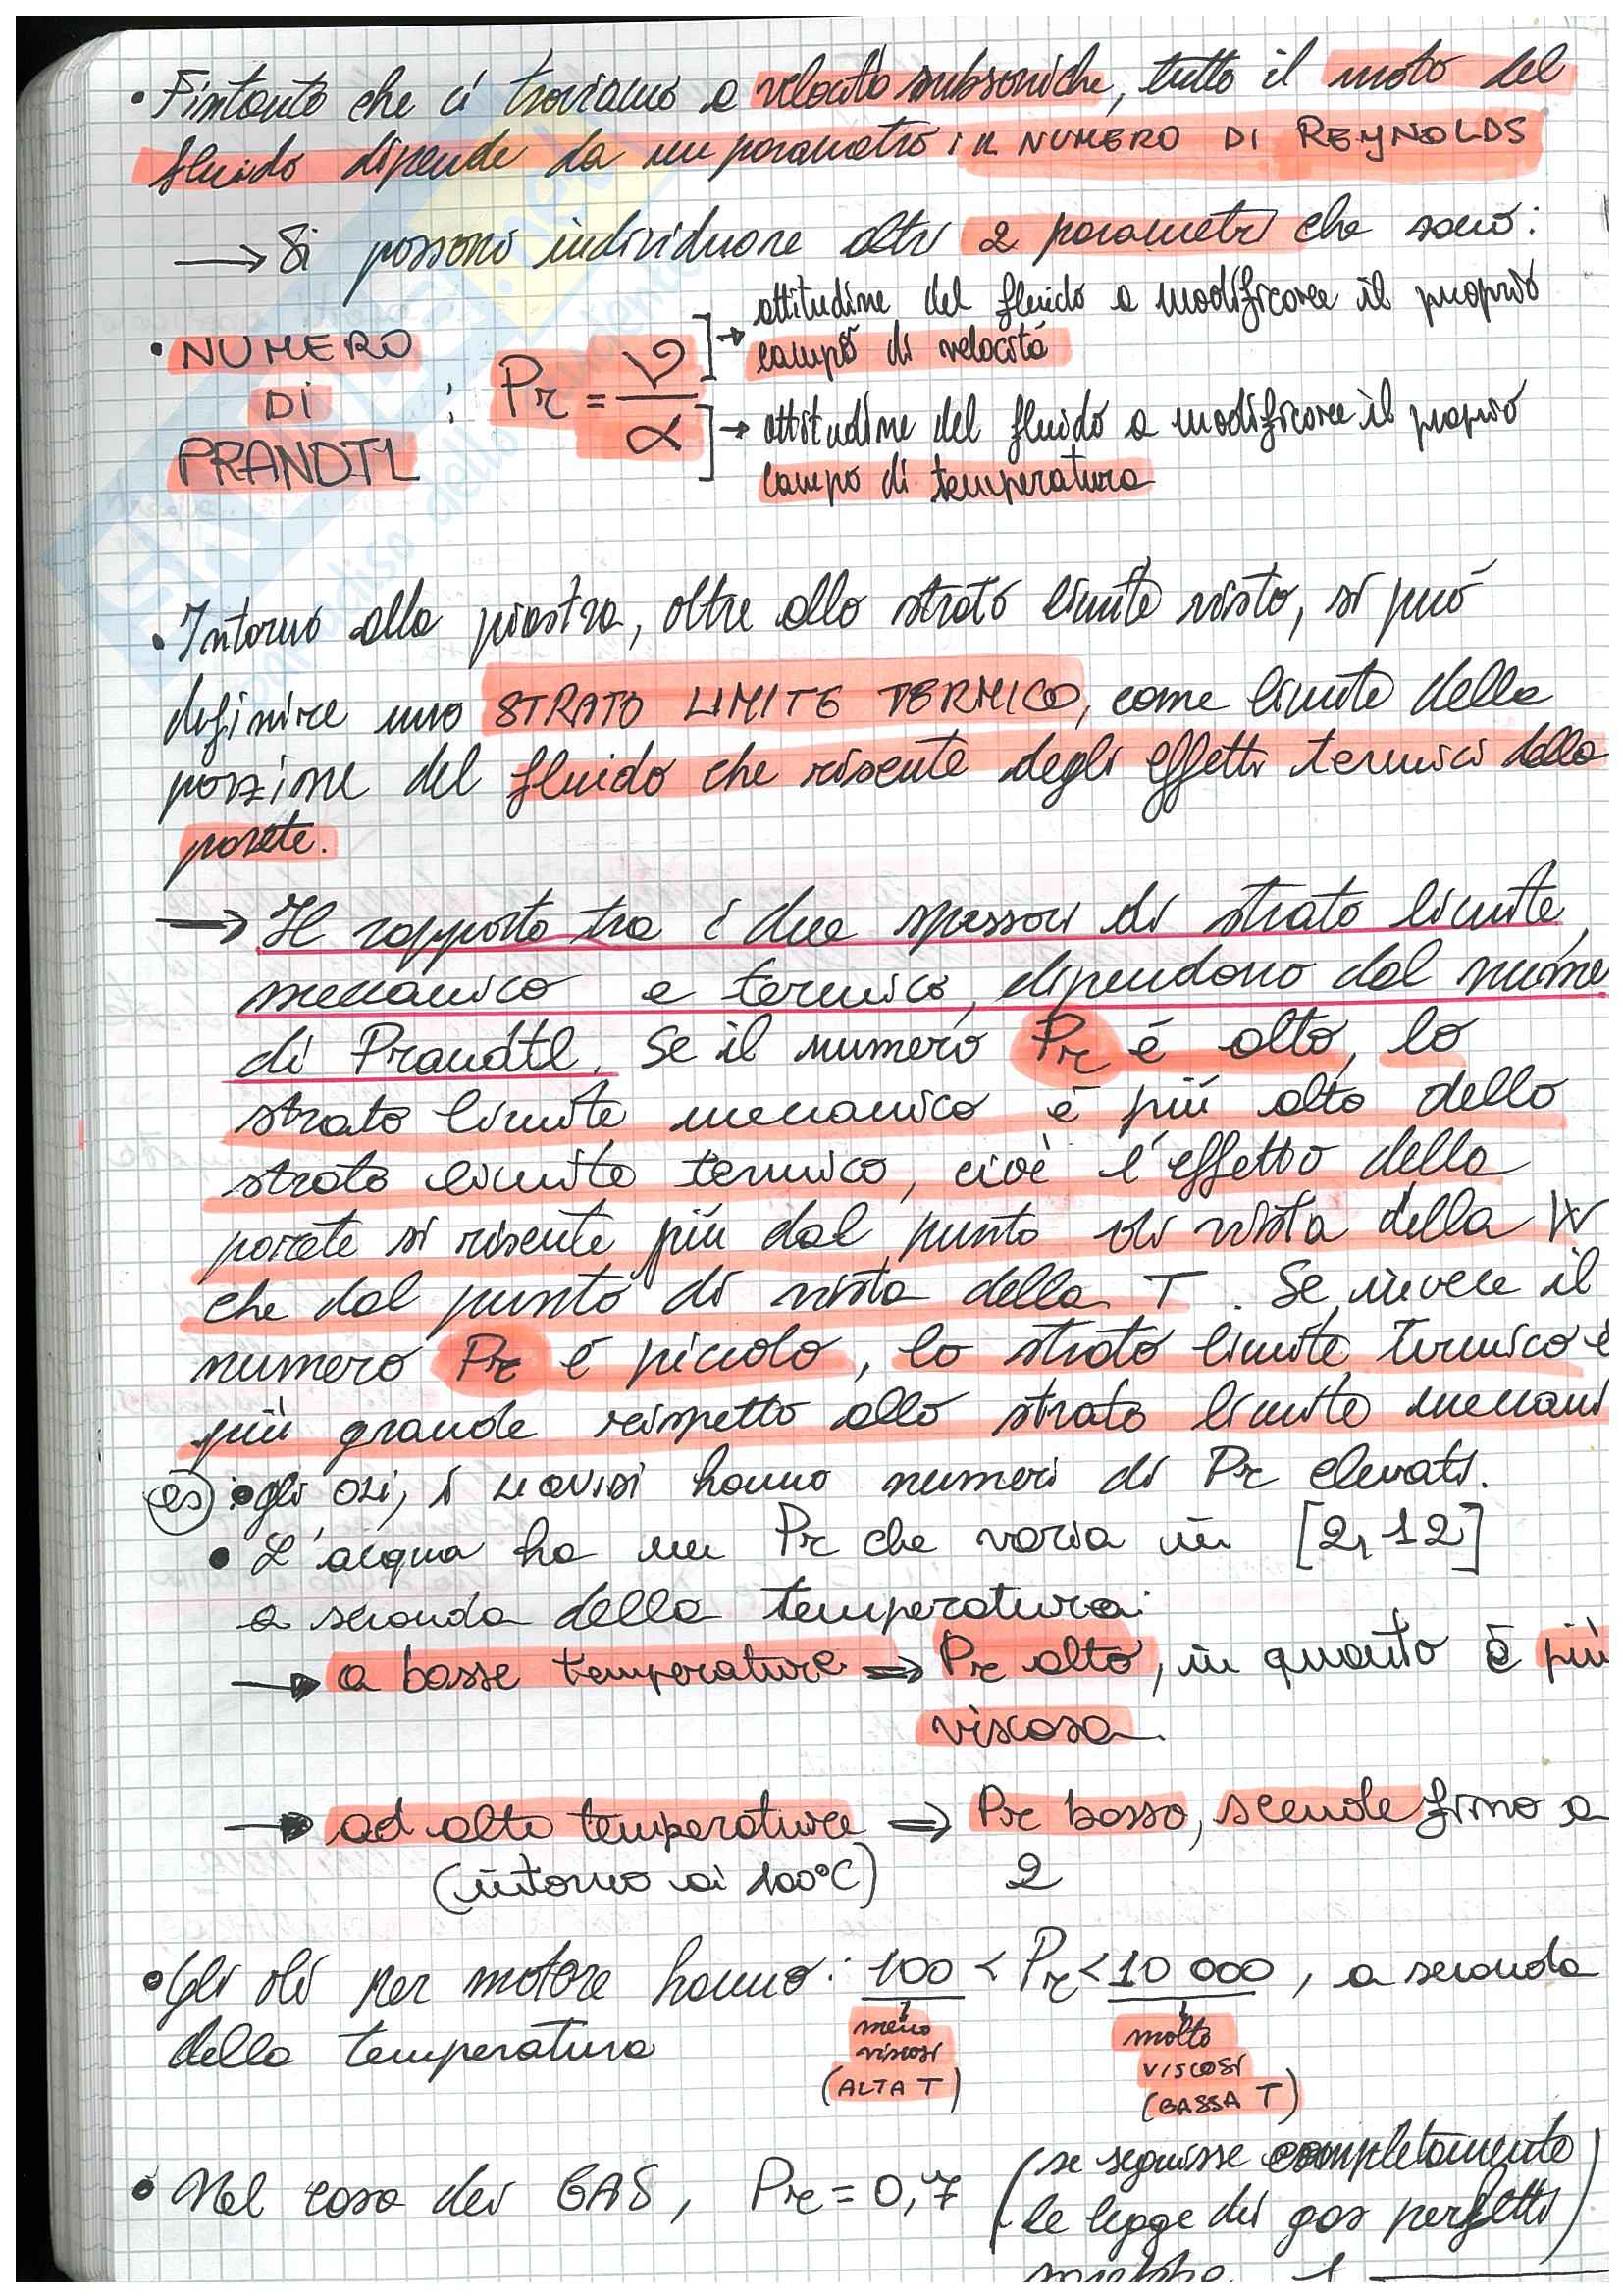 • Fintanto che ci troviamo a velocità subsoniche, tutto il moto del
fluido dipende da un parametro: il NUMERO DI REYNOLDS
→ Si possono individuare altri 2 parametri che sono:
• NUMERO DI PRANDTL : Pr = ν / α
→ attitudine del fluido a modificare il proprio
campo di velocità
→ attitudine del fluido a modificare il proprio
campo di temperatura
• Intorno alla piastra, oltre allo strato limite visto, si può
definire uno STRATO LIMITE TERMICO, come limite della
porzione del fluido che risente degli effetti termici della
parete.
→ Il rapporto tra i due spessori di strato limite,
meccanico e termico, dipendono dal nume
di Prandtl. Se il numero Pr è alto, lo
strato limite meccanico è più alto dello
strato limite termico, cioè l'effetto della
parete si risente più dal punto di vista della W
che dal punto di vista della T. Se invece il
numero Pr è piccolo, lo strato limite termico è
più grande rispetto allo strato limite meccani
es • gli oli, i hanno numeri di Pr elevati.
• L'acqua ha un Pr che varia in [2, 12]
a seconda della temperatura:
→ a basse temperature ⇒ Pr alto, in quanto è più
viscosa.
→ ad alte temperature ⇒ Pr basso, scende fino a
(intorno ai 100°C) 2
• Gli oli per motore hanno: 100 < Pr < 10 000, a seconda
della temperatura
meno
viscosi
(ALTA T)
molto
viscosi
(BASSA T)
• Nel caso dei GAS, Pr = 0,7 (se seguisse completamente
le legge dei gas perfetti)
1